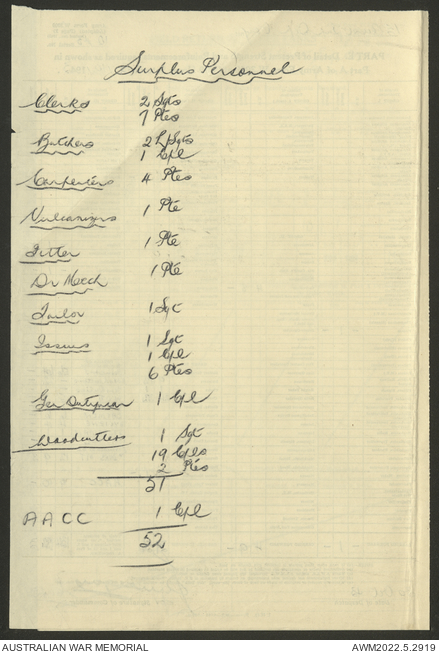 Surplus Personnel
Clerks 2 Sgts
7 Ptes
Butchers 2 L/Sgts
1 Cpl
Carpenters 4 Ptes
Vulcanizers 1 Pte
Fitter 1 Pte
Dr Mech 1 Pte
Tailor 1 Sgt
Issues 1 Sgt
1 Cpl
6 Ptes
Gen Dutyman 1 Cpl
Woodcutters 1 Sgt
19 Cpls
2 Ptes
51
AACC 1 Cpl
52
AUSTRALIAN WAR MEMORIAL AWM2022.5.2919